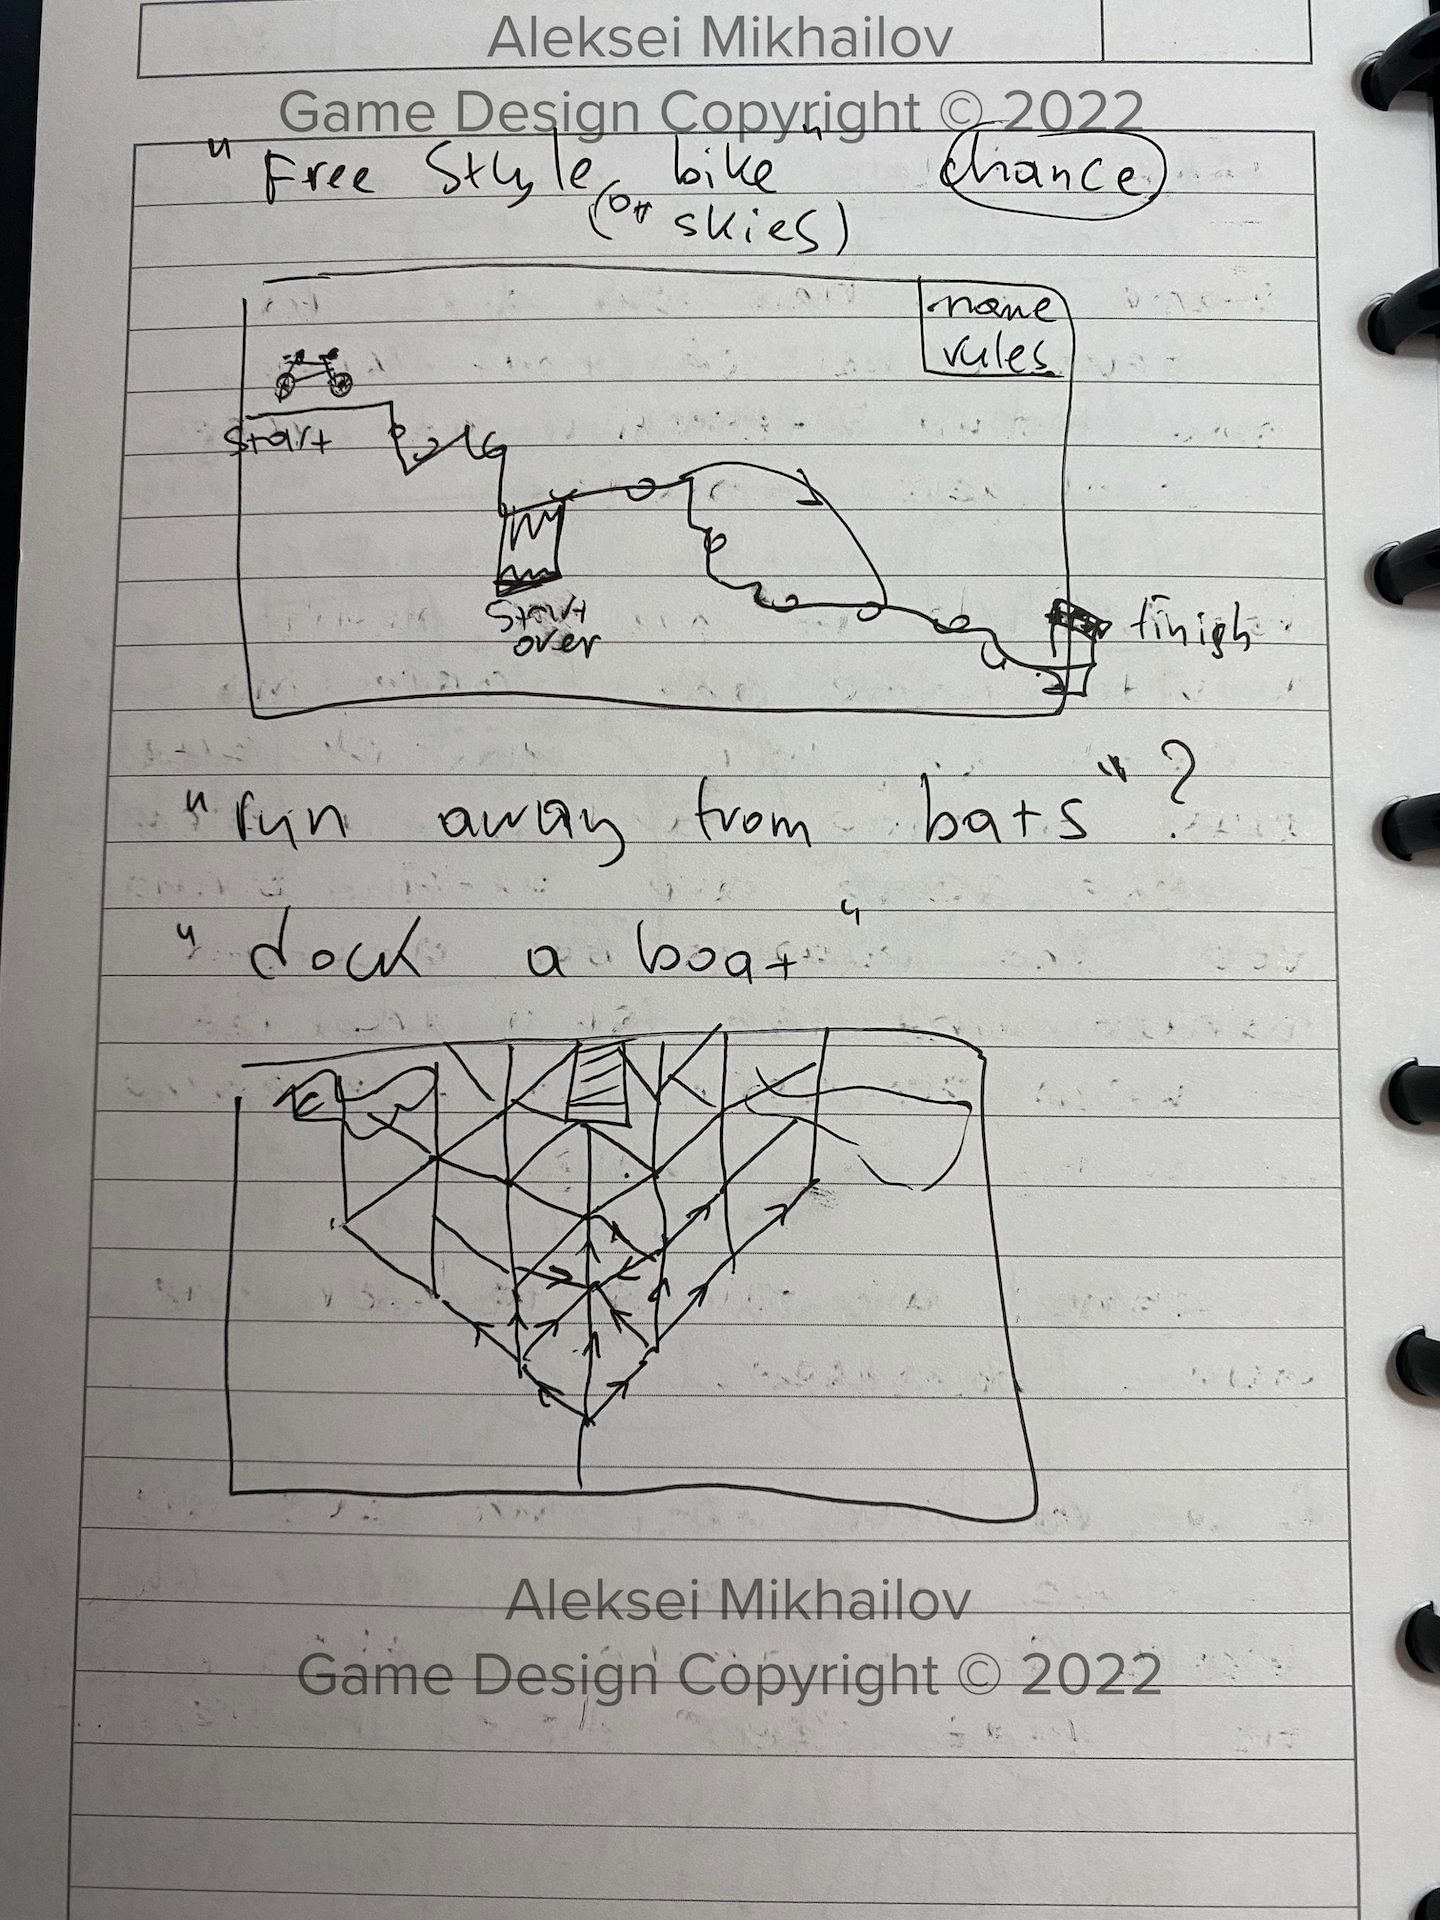 Aleksei Mikhailov
Game Design Copyright © 2022
"Free Style bike" chance
(or skies)
name
rules
start
start
over
finish
"run away from bats"?
"dock a boat"
Aleksei Mikhailov
Game Design Copyright © 2022